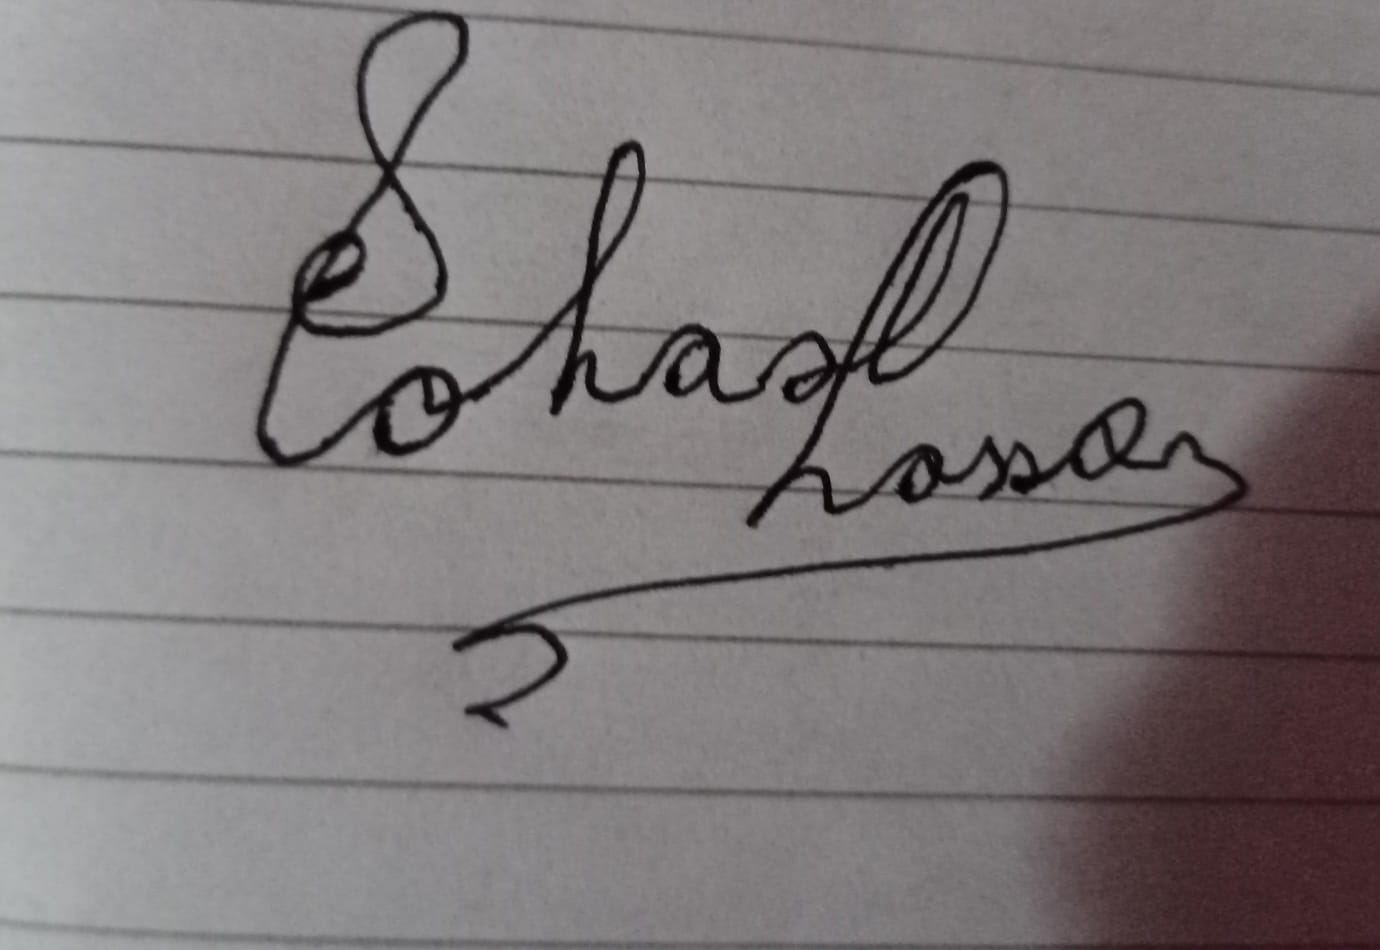 Sohail
hassan